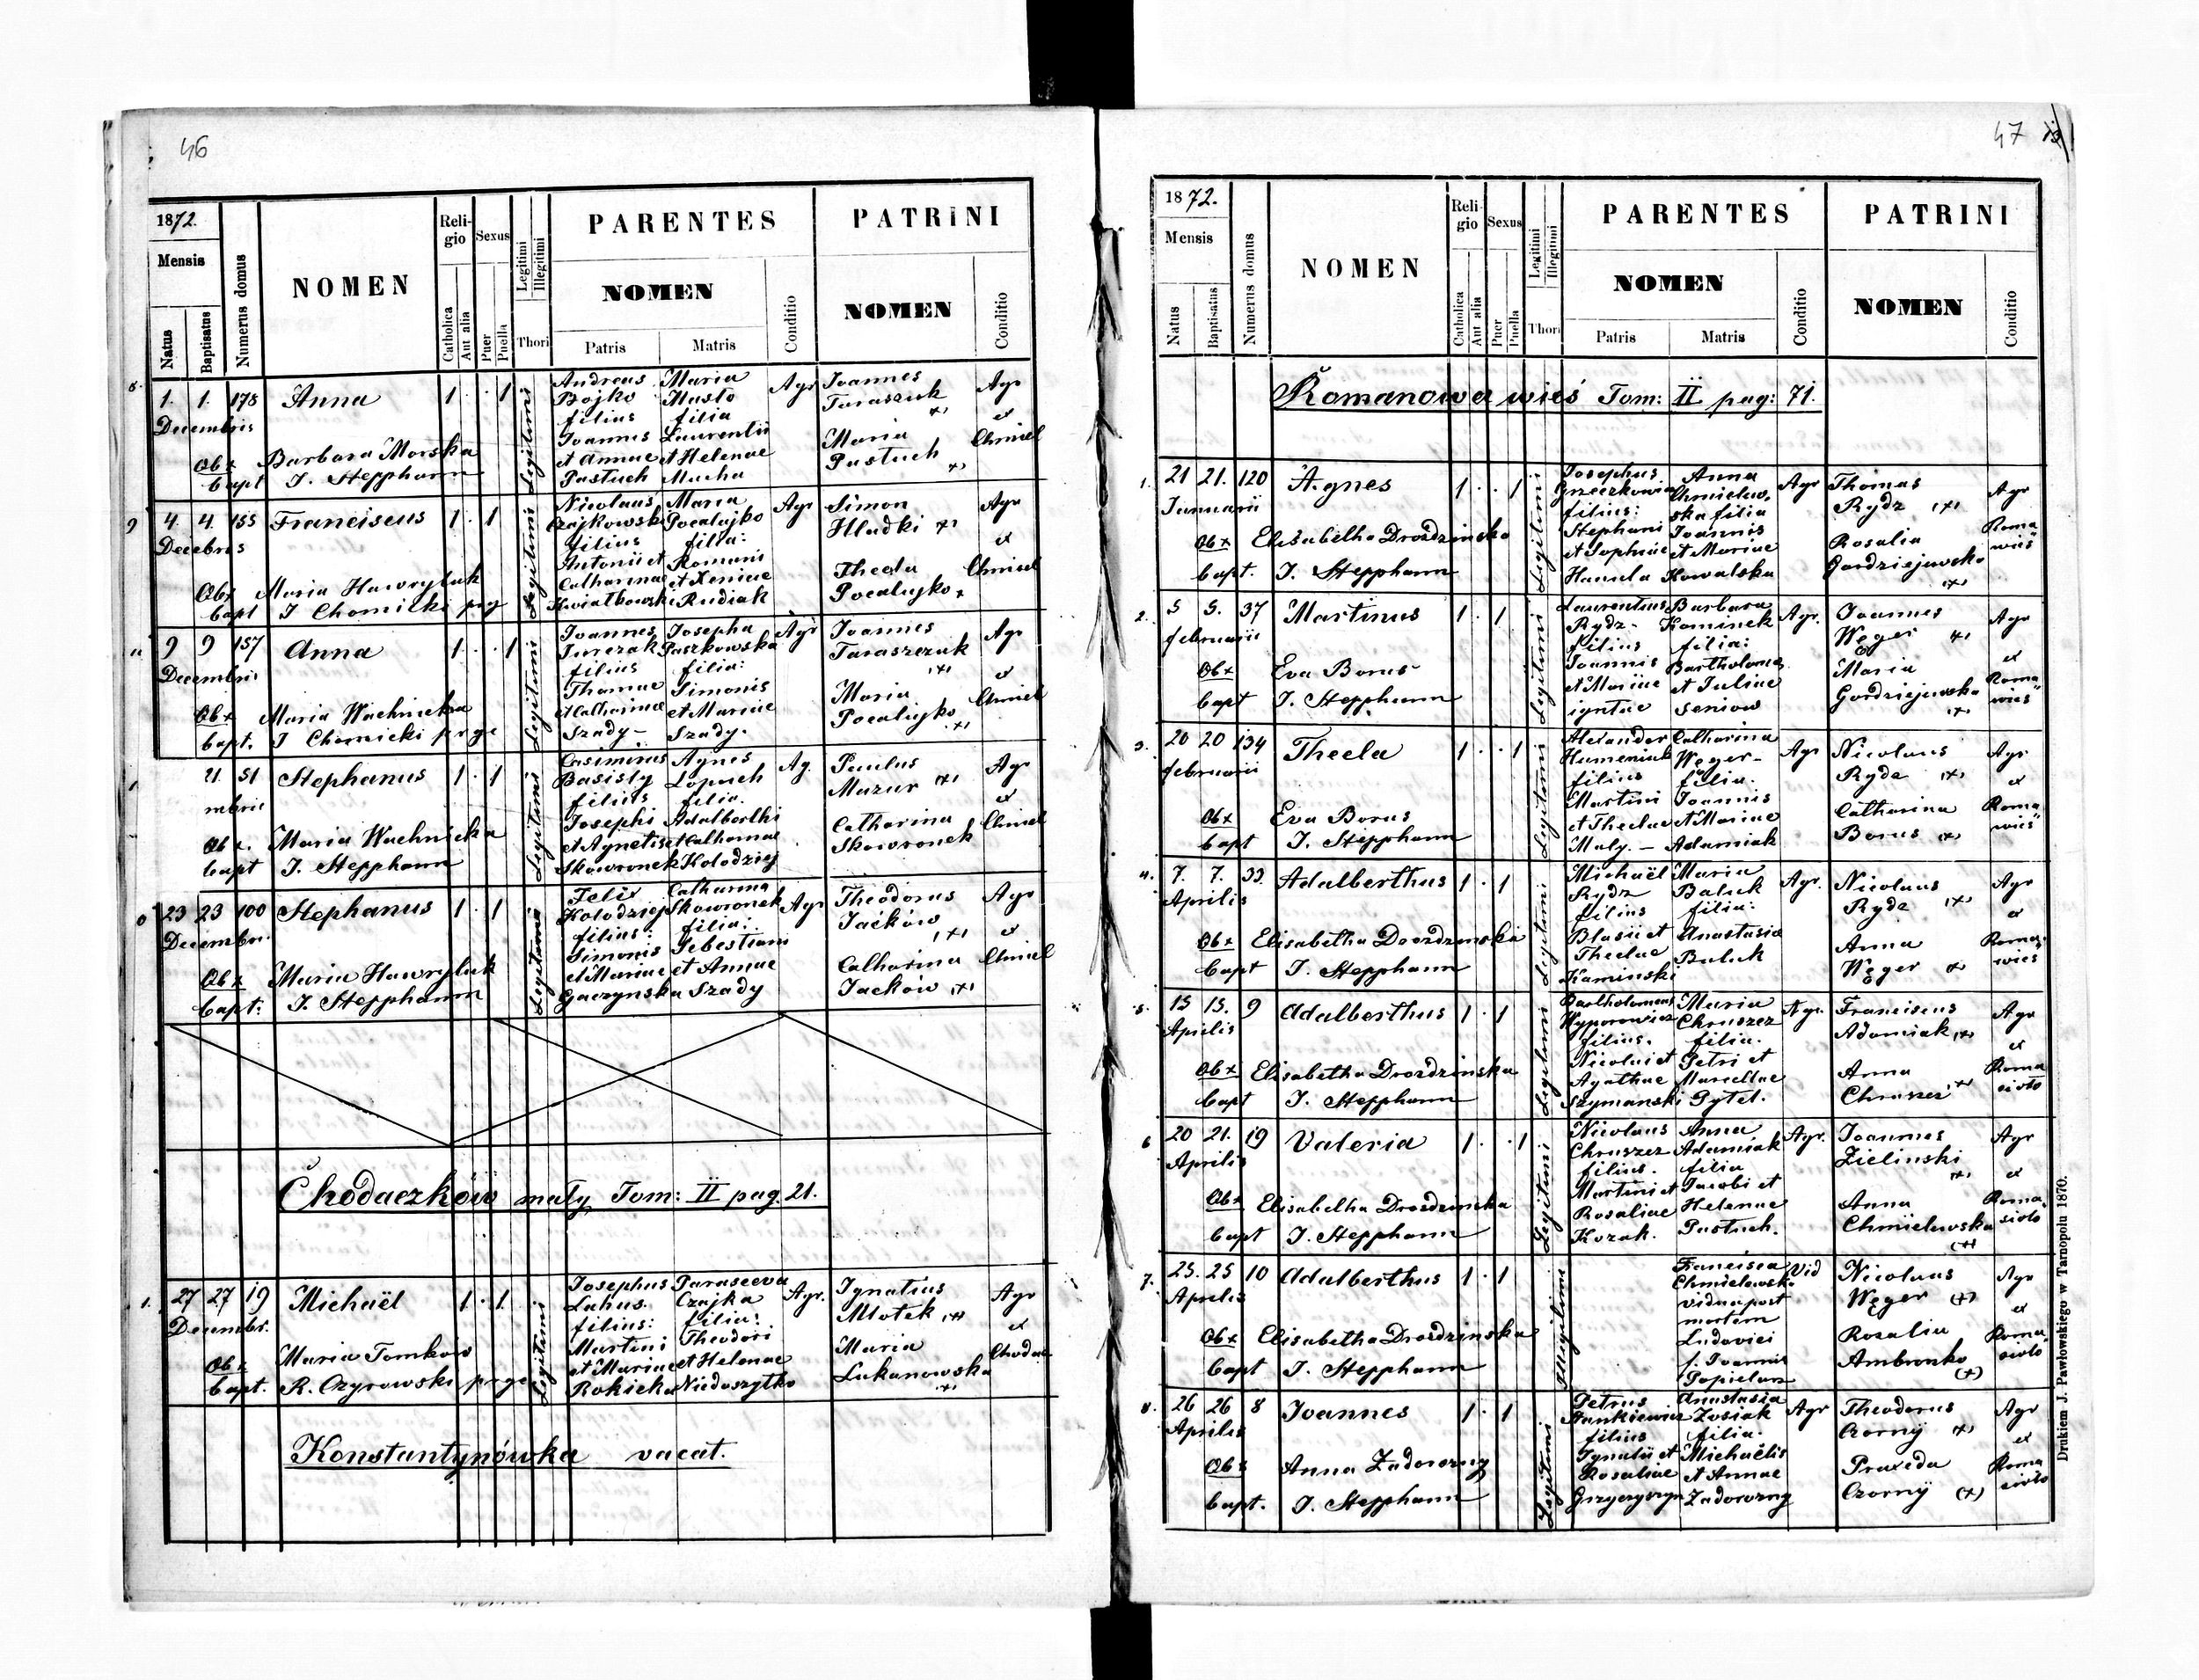 46
1872.
Mensis
Natus
Baptisatus
Numerus domus
NOMEN
Religio
Catholica
Aut alia
Sexus
Puer
Puella
Legitimi
Illegitimi
Thori
PARENTES
NOMEN
Patris
Matris
Conditio
PATRINI
NOMEN
Conditio
1. 1. 178 Anna 1 . . 1
Decembris
Obx Barbara Morska
bapt J. Stepphann
Legitimi
Andreas
Bojko
filius
Joannis
et Annae
Pastuch
Maria
Musto
filia
Laurentii
et Helenae
Mucha
Agr
Joannes
Taraszuk
Maria
Pastuch
Agr
et
Chmiel
9 4. 4. 155 Franciscus 1 . 1
Decebris
Obx Maria Hawryluk
bapt J Chomicki prg
Legitimi
Nicolaus
Czajkowski
filius
Antonii et
Catharinae
Kwiatkowski
Maria
Pocalujko
filia:
Romani
et Xeniae
Rudiak
Agr
Simon
Hladki
Thecla
Pocalujko
Agr
et
Chmiel
9 9 157 Anna 1 . . 1
Decembris
Obx Maria Wachnicka
bapt. J Chomicki prge
Legitimi
Joannes
Jurczak
filius
Thomae
et Catharinae
Szady -
Josepha
Paszkowska
filia:
Simonis
et Mariae
Szady.
Agr
Joannes
Taraszczuk
Maria
Pocalujko
Agr
et
Chmiel
21 51 Stephanus 1 . 1
mbris
Obx. Maria Wachnicka
bapt J. Stepphann
Legitimi
Casimirus
Basisty
filius
Josephi
et Agnetis
Skowronek
Agnes
Lopuch
filia.
Adalberthi
et Catharinae
Kolodziej
Ag.
Paulus
Mazur
Catharina
Skowronek
Agr
et
Chmiel
23 23 100 Stephanus 1 . 1
Decembri
Obx Maria Hawryluk
bapt: J. Stepphann
Legitimi
Felix
Kolodziej
filius:
Simonis
et Mariae
Gaczynska
Catharina
Skowronek
filia:
Sebestiani
et Annae
Szady
Agr
Theodorus
Jacków
Catharina
Jackow
Agr
et
Chmiel
Chodaczków maly Tom: II pag. 21.
1. 27 27 19 Michaël 1 . 1.
Decembr.
Obx Maria Tomkow
bapt. R. Czyrowski prge
Legitimi
Josephus
Lahus.
filius:
Martini
et Mariae
Rokicka
Parasceva
Czajka
filia:
Theodori
et Helenae
Niedoszytko
Agr.
Ignatius
Mlotek
Maria
Lukanowska
Agr
et
Chodac
Konstantynówka vacat.
47
1872.
Mensis
Natus
Baptisatus
Numerus domus
NOMEN
Religio
Catholica
Aut alia
Sexus
Puer
Puella
Legitimi
Illegitimi
Thori
PARENTES
NOMEN
Patris
Matris
Conditio
PATRINI
NOMEN
Conditio
Romanowa wieś Tom: II pag: 71.
1. 21 21. 120 Agnes 1 . . 1
Januarii
Obx Elisabetha Drozdzinska
bapt. J. Stepphann
Legitimi
Josephus
filius:
Stephani
et Sophiae
Hanula
Anna
Chmielew.
ska filia
Joannis
et Mariae
Kowalska
Agr
Thomas
Rydz
Rosalia
Gordziejewska
Agr
Roma
wieś
2. 5 5. 37 Martinus 1 . 1
februarii
Obx Eva Borus
bapt J. Stepphann
Legitimi
Laurentius
Rydz -
filius
Joannis
et Mariae
Barbara
Kominek
filia:
Bartholomei
et Juliae
Seniow
Agr.
Joannes
Węger
Maria
Gordziejewska
Agr
et
Roma
wieś
3. 20 20 134 Thecla 1 . . 1
februarii
Obx Eva Borus
bapt J. Stepphann
Legitimi
Alexander
Humeniuk
filius
Martini
et Theclae
Maly. -
Catharina
Węger -
filia.
Joannis
et Mariae
Adamiak
Agr
Nicolaus
Rydz
Catharina
Borus
Agr
et
Roma
wieś
4. 7. 7. 33. Adalberthus 1 . 1
Aprilis
Obx Elisabetha Drozdzinska
bapt J. Stepphann
Legitimi
Michaël
Rydz
filius
Blasii et
Theclae
Kaminski
Maria
Baluk
filia:
Anastasia
Baluk
Agr.
Nicolaus
Rydz
Anna
Węger
Agr
et
Roma
wieś
5. 15 15. 9 Adalberthus 1 . 1
Aprilis
Obx Elisabetha Drozdzinska
bapt J. Stepphann
Legitimi
Bartholomeus
Wyporowicz
filius.
Nicolai et
Agathae
Szymanski
Maria
Chruszcz
filia.
Petri et
Marcellae
Pytel.
Agr.
Franciscus
Adamiak
Anna
Chruszcz
Agr
et
Roma
sioło
6 20 21. 19 Valeria 1 . . 1
Aprilis
Obx Elisabetha Drozdzinska
bapt J. Stepphann
Legitimi
Nicolaus
Chruszcz
filius.
Martini et
Rosaliae
Kozak.
Anna
Adamiak
filia
Jacobi et
Helenae
Pastuch.
Agr.
Joannes
Zielinski
Anna
Chmielewska
Agr
et
Roma
sioło
7. 25. 25 10 Adalberthus 1 . 1
Aprilis
Obx Elisabetha Drozdzinska
bapt J. Stepphann
Illegitimi
Francisca
Chmielewski
vidua post
mortem
Ludovici
f. Joannis
Popielarz
Vid
Nicolaus
Węger
Rosalia
Ambronko
Agr
et
Roma
sioło
8. 26 26 8 Joannes 1 . 1
Aprilis
Obx Anna Zadorozny
bapt. J. Stepphann
Legitimi
Petrus
filius
Ignatii et
Rosaliae
Anastasia
Zosiak
filia.
Michaëlis
et Annae
Zadorozny
Agr
Theodorus
Czorny
Praxeda
Czorny
Agr
et
Roma
sioło
Drukiem J. Pawłowskiego w Tarnopolu 1870.